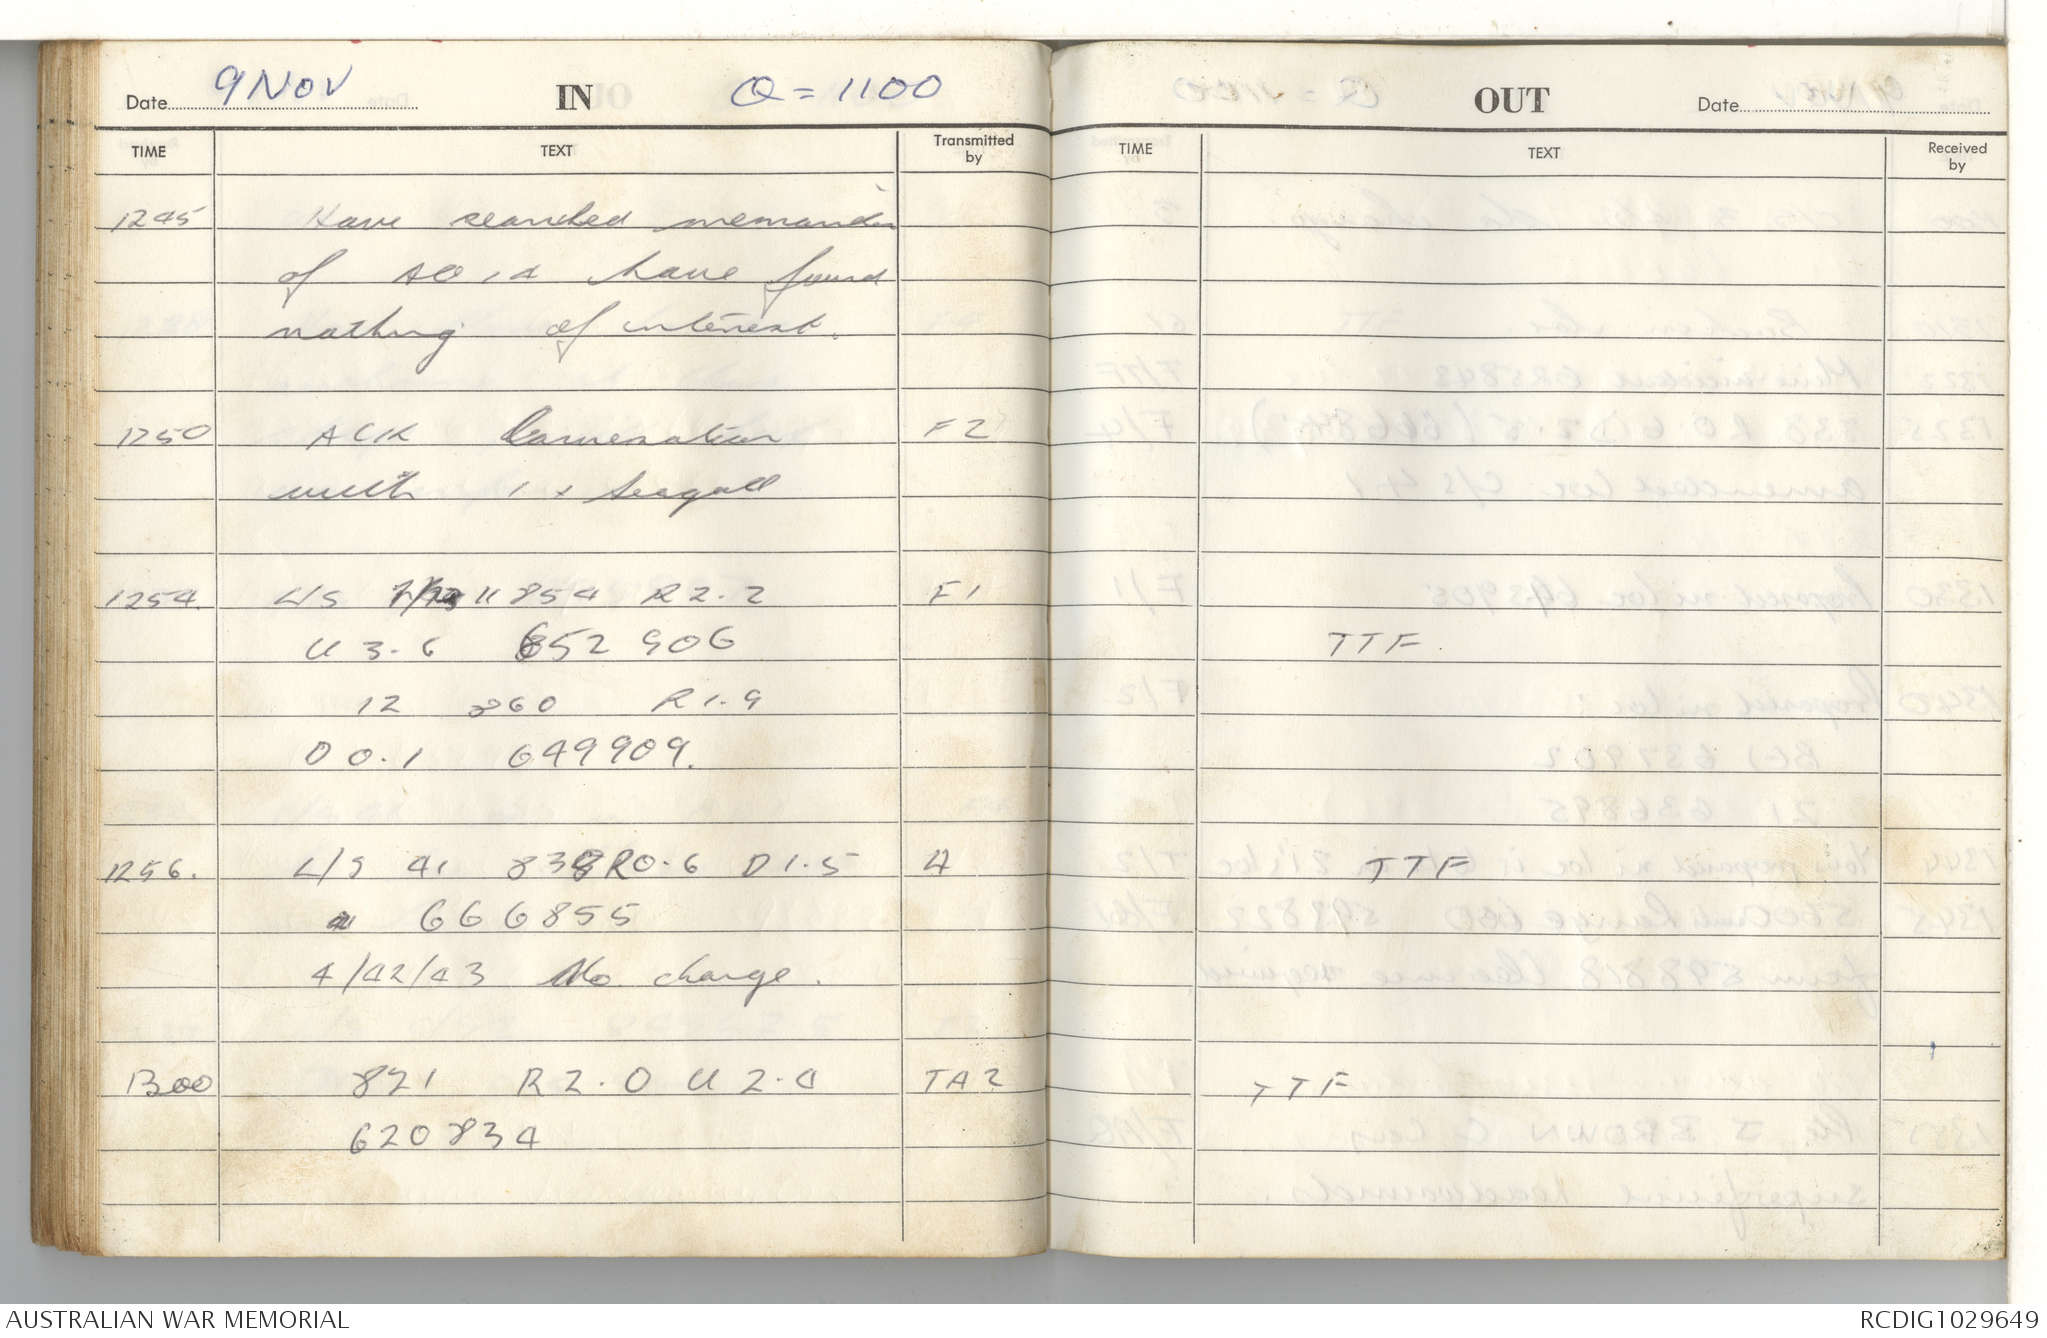 Date 9 NOV IN Q = 1100
TIME TEXT Transmitted by
1245 Have searched remainder
of AO 14 have found
nothing of interest.
1250 ACK Conversation F2
with 1 x Seagull
1254. L/S 11 854 R2.2 F1
U 3.6 652 906
12 860 R1.9
D 0.1 649909.
1256. L/S 41 838 R0.6 D1.5 4
666855
4/42/43 No change.
1300 821 R2.0 U2.4 TA2
620834
OUT Date
TIME TEXT Received by
TTF
TTF
TTF
AUSTRALIAN WAR MEMORIAL
RCDIG1029649